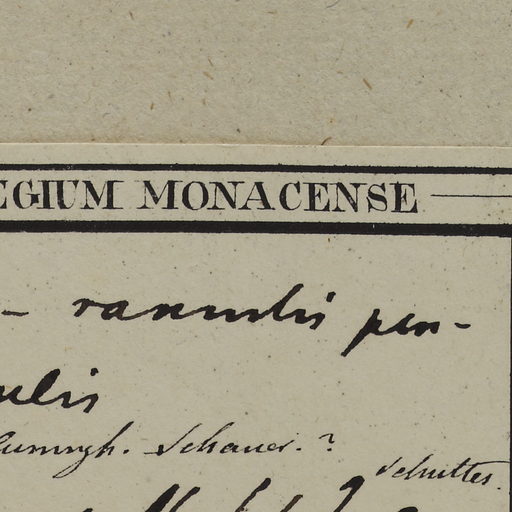 EGIUM MONACENSE
– ramulis pen-
ulis
Schauer. ?
Schultes.